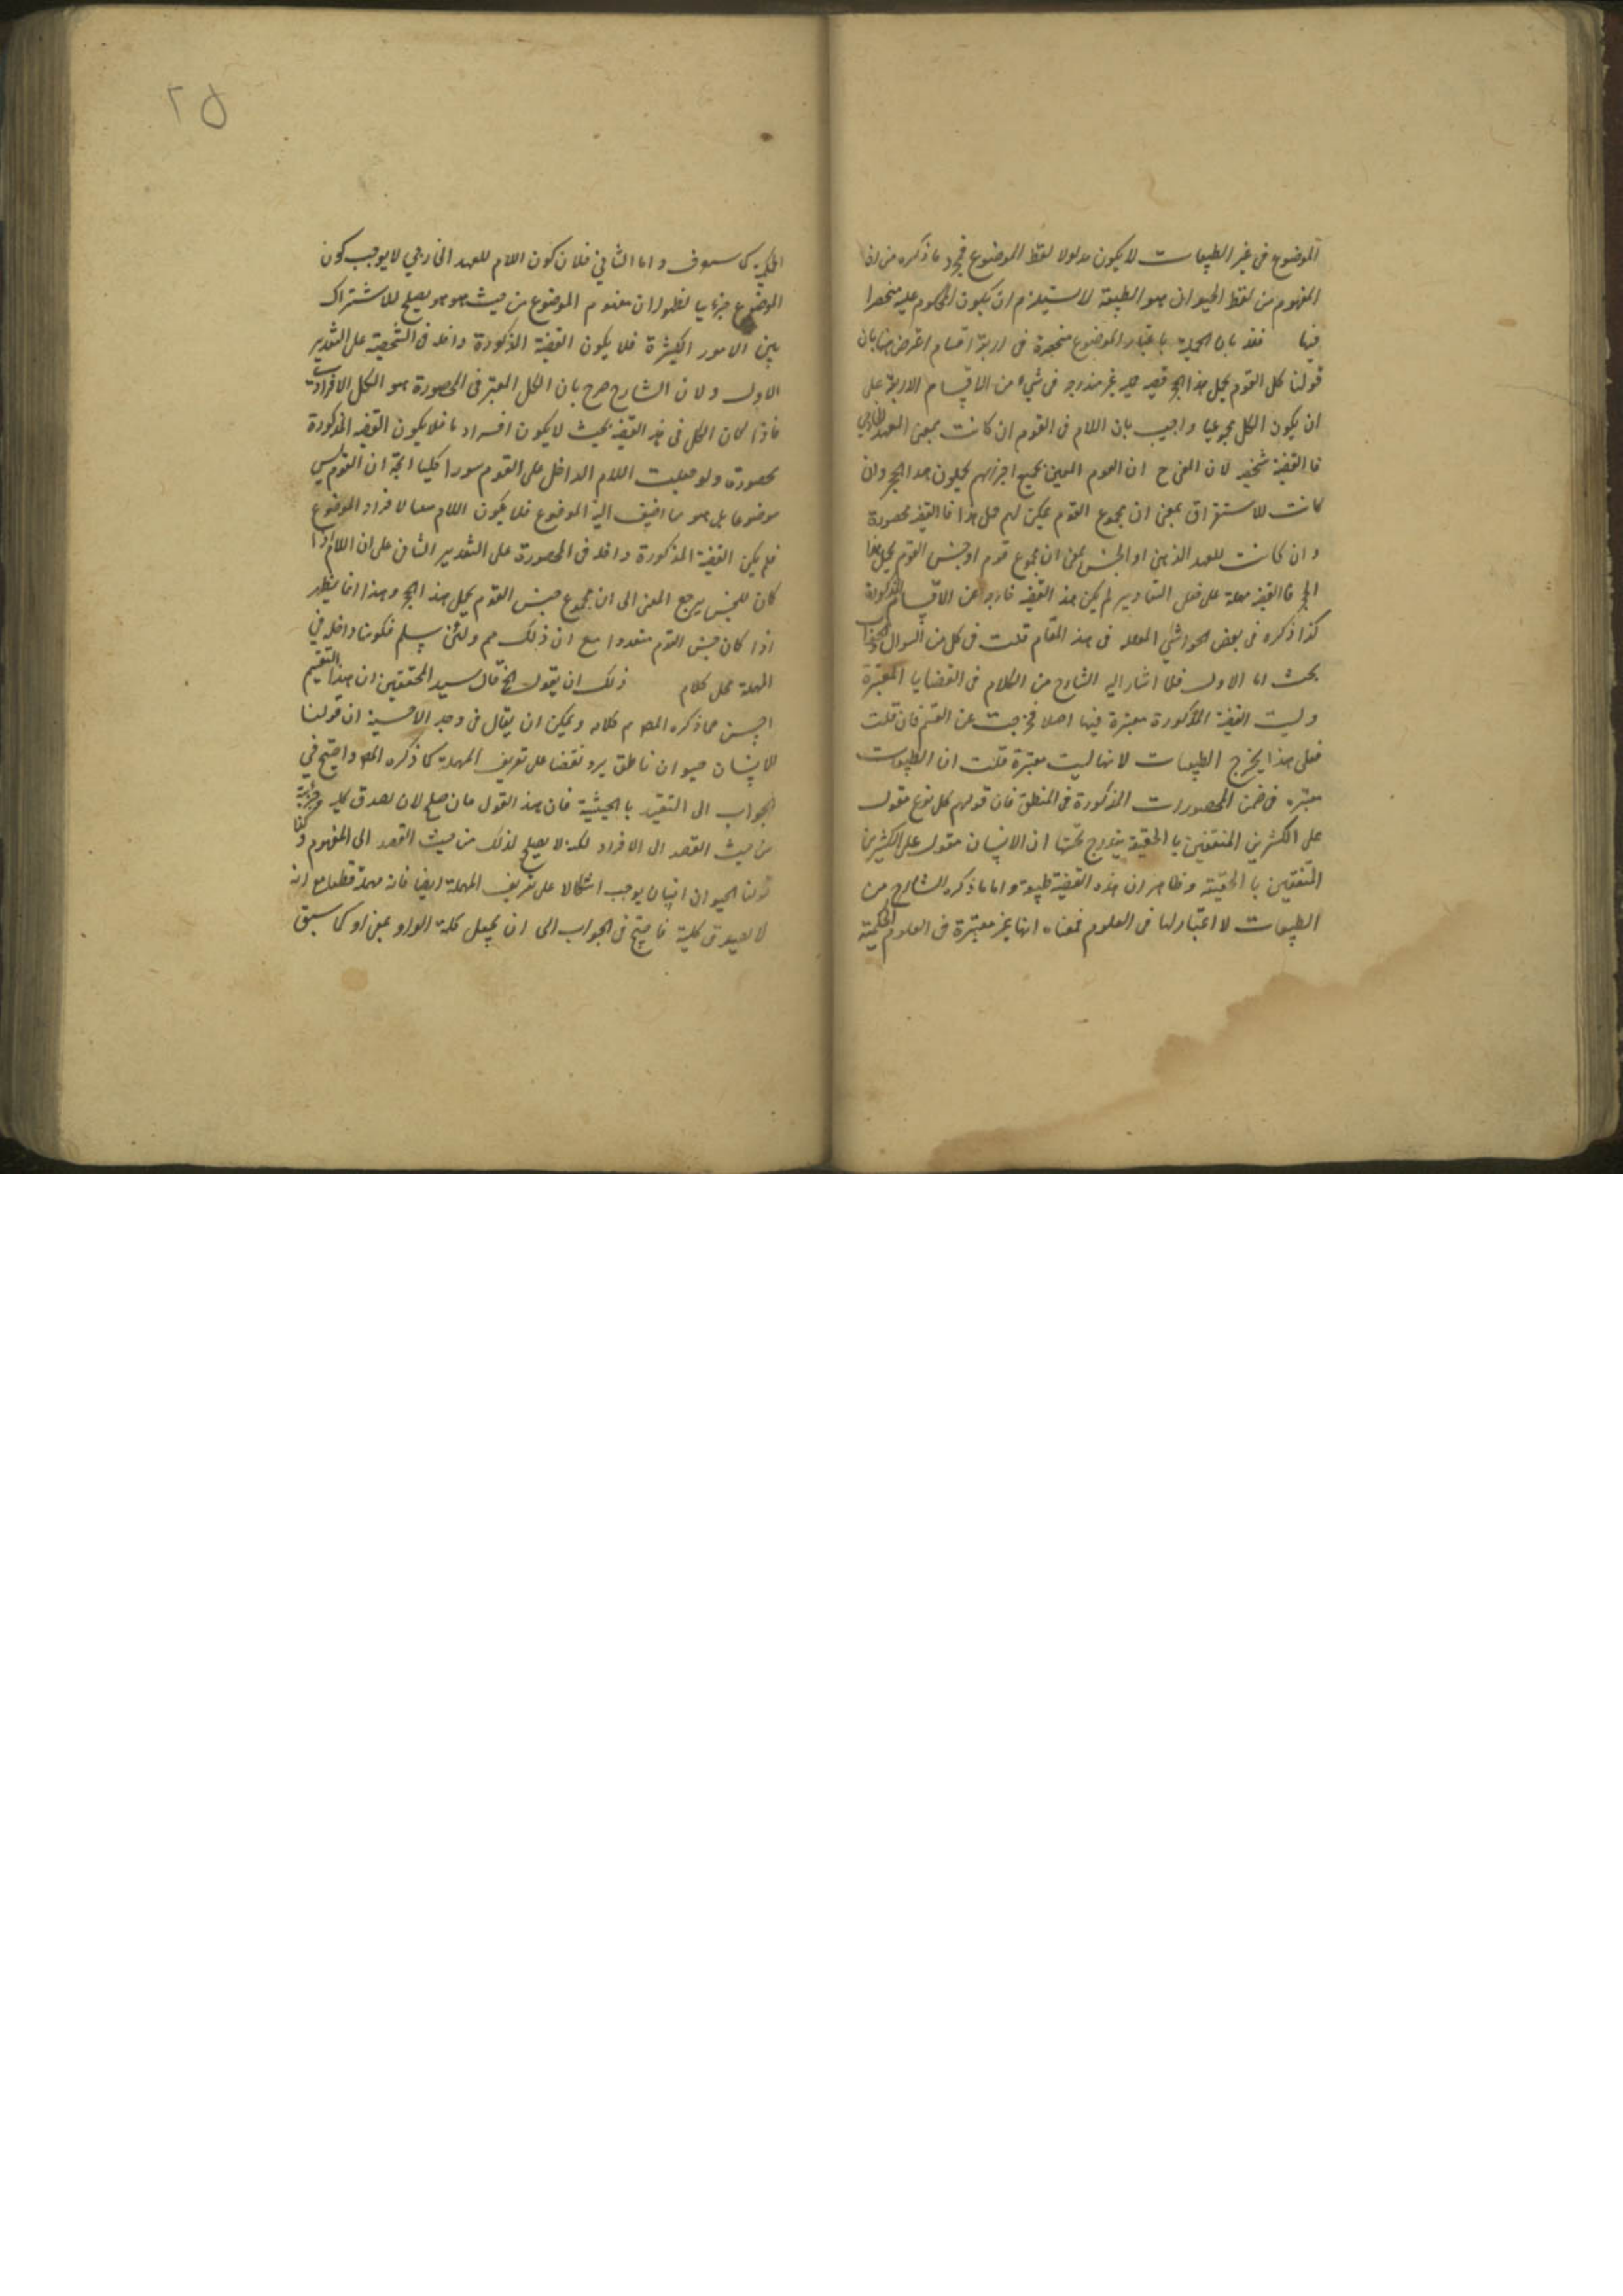 الموضوع فى غير الطبيعات لا يكون مدلولا لفظ الموضوع فمجرد ما ذكره من ان
المفهوم من لفظ الحيوان هو الطبيعة لا يستلزم ان يكون المحكوم عليه منحصرا
فيها فقد بان الحملية باعتبار الموضوع منحصرة فى اربعة اقسام اعترض هنا بان
قولنا كل القوم يحمل هذا الحجر قضية حملية غير مندرجة فى شىء من الاقسام الاربعة على
ان يكون الكل مجموعيا واجيب بان اللام فى القوم ان كانت بمعنى العهد الخارجي
فالقضية شخصية لان المعنى ح ان القوم المعين بجميع اجزائهم يحملون هذا الحجر وان
كانت للاستغراق بمعنى ان مجموع القوم يمكن لهم حمل هذا فالقضية محصورة
وان كانت للعهد الذهنى او الجنس بمعنى ان مجموع قوم او جنس القوم يحمل هذا
الحجر فالقضية مهملة على التقادير لم يكن هذه القضية خارجة عن الاقسام المذكورة
كذا ذكره فى بعض الحواشي المعلقة فى هذا المقام قلت فى كل من السوال والجواب
بحث اما الاول فلما اشار اليه الشارح من الكلام فى القضايا المعتبرة
وليست القضية المذكورة معتبرة فيها اصلا فخرجت عن القسم فان قلت
فعلى هذا يخرج الطبيعات لانها ليست معتبرة قلت ان الطبيعات
معتبرة فى ضمن المحصورات المذكورة فى المنطق فان قولهم كل نوع مقول
على الكثيرين المتفقين بالحقيقة يندرج تحتها ان الانسان مقول على الكثيرين
المتفقين بالحقيقة وظاهر ان هذه القضية طبيعية واما ما ذكره الشارح من
الطبيعات لا اعتبار لها فى العلوم فمعناه انها غير معتبرة فى العلوم الحكمية
الحكمية كما سيعرف واما الثاني فلان كون اللام للعهد الخارجي لا يوجب كون
الموضوع جزئيا لظهور ان مفهوم الموضوع من حيث هو هو يصلح للاشتراك
بين الامور الكثيرة فلا يكون القضية المذكورة داخلة فى الشخصية على التقدير
الاول ولان الشارح صرح بان الكل المعتبر فى المحصورة هو الكل الافرادي
فاذا كان الكل فى هذه القضية بحيث لا يكون افراديا فلا يكون القضية المذكورة
محصورة ولو جعلت اللام الداخل على القوم سورا كليا ان القوم ليس
موضوعا بل هو ما اضيف اليه الموضوع فلا يكون اللام لافراد الموضوع
فلم يكن القضية المذكورة داخلة فى المحصورة على التقدير الثانى على ان اللام اذا
كان للجنس يرجع المعنى الى ان مجموع جنس القوم يحمل هذا الحجر وهذا انما يظهر
اذا كان جنس القوم متعددا مع ان ذلك مم ولئن سلم فكونها داخلة في
المهملة محل كلام ذلك ان يقول الخ قال سيد المحققين ان هذا التقسيم
احسن مما ذكره المص م كلامه ويمكن ان يقال فى وجه الاحسنية ان قولنا
الانسان حيوان ناطق يرد نقضا على تعريف المهملة كما ذكره المص واحتج في
الجواب الى التقييد بالحيثية فان هذا القول صلح لان يصدق كلية وجزئية
من حيث القصد الى الافراد لكنه لا يصلح لذلك من حيث القصد الى المفهوم وكذا
قولنا الحيوان انسان يوجب اشكالا على تعريف المهملة ايضا فانه مهملة قطعا مع انه
لا يصدق كلية فاحتج فى الجواب الى ان يجعل كلمة الواو بمعنى او كما سبق
٢٥